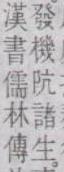 發機阬諸生。
漢書儒林傳